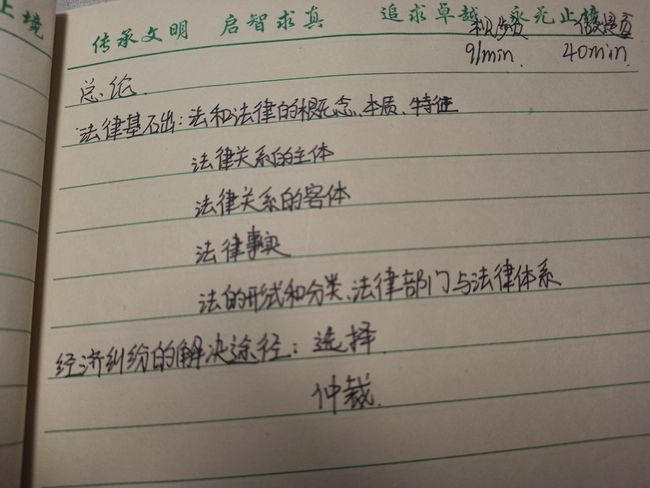 止境
传承文明 启智求真 追求卓越 永无止境
视频 做题
91min. 40min.
总论.
法律基础:法和法律的概念、本质、特征
法律关系的主体
法律关系的客体
法律事实
法的形式和分类、法律部门与法律体系
经济纠纷的解决途径:选择
仲裁.